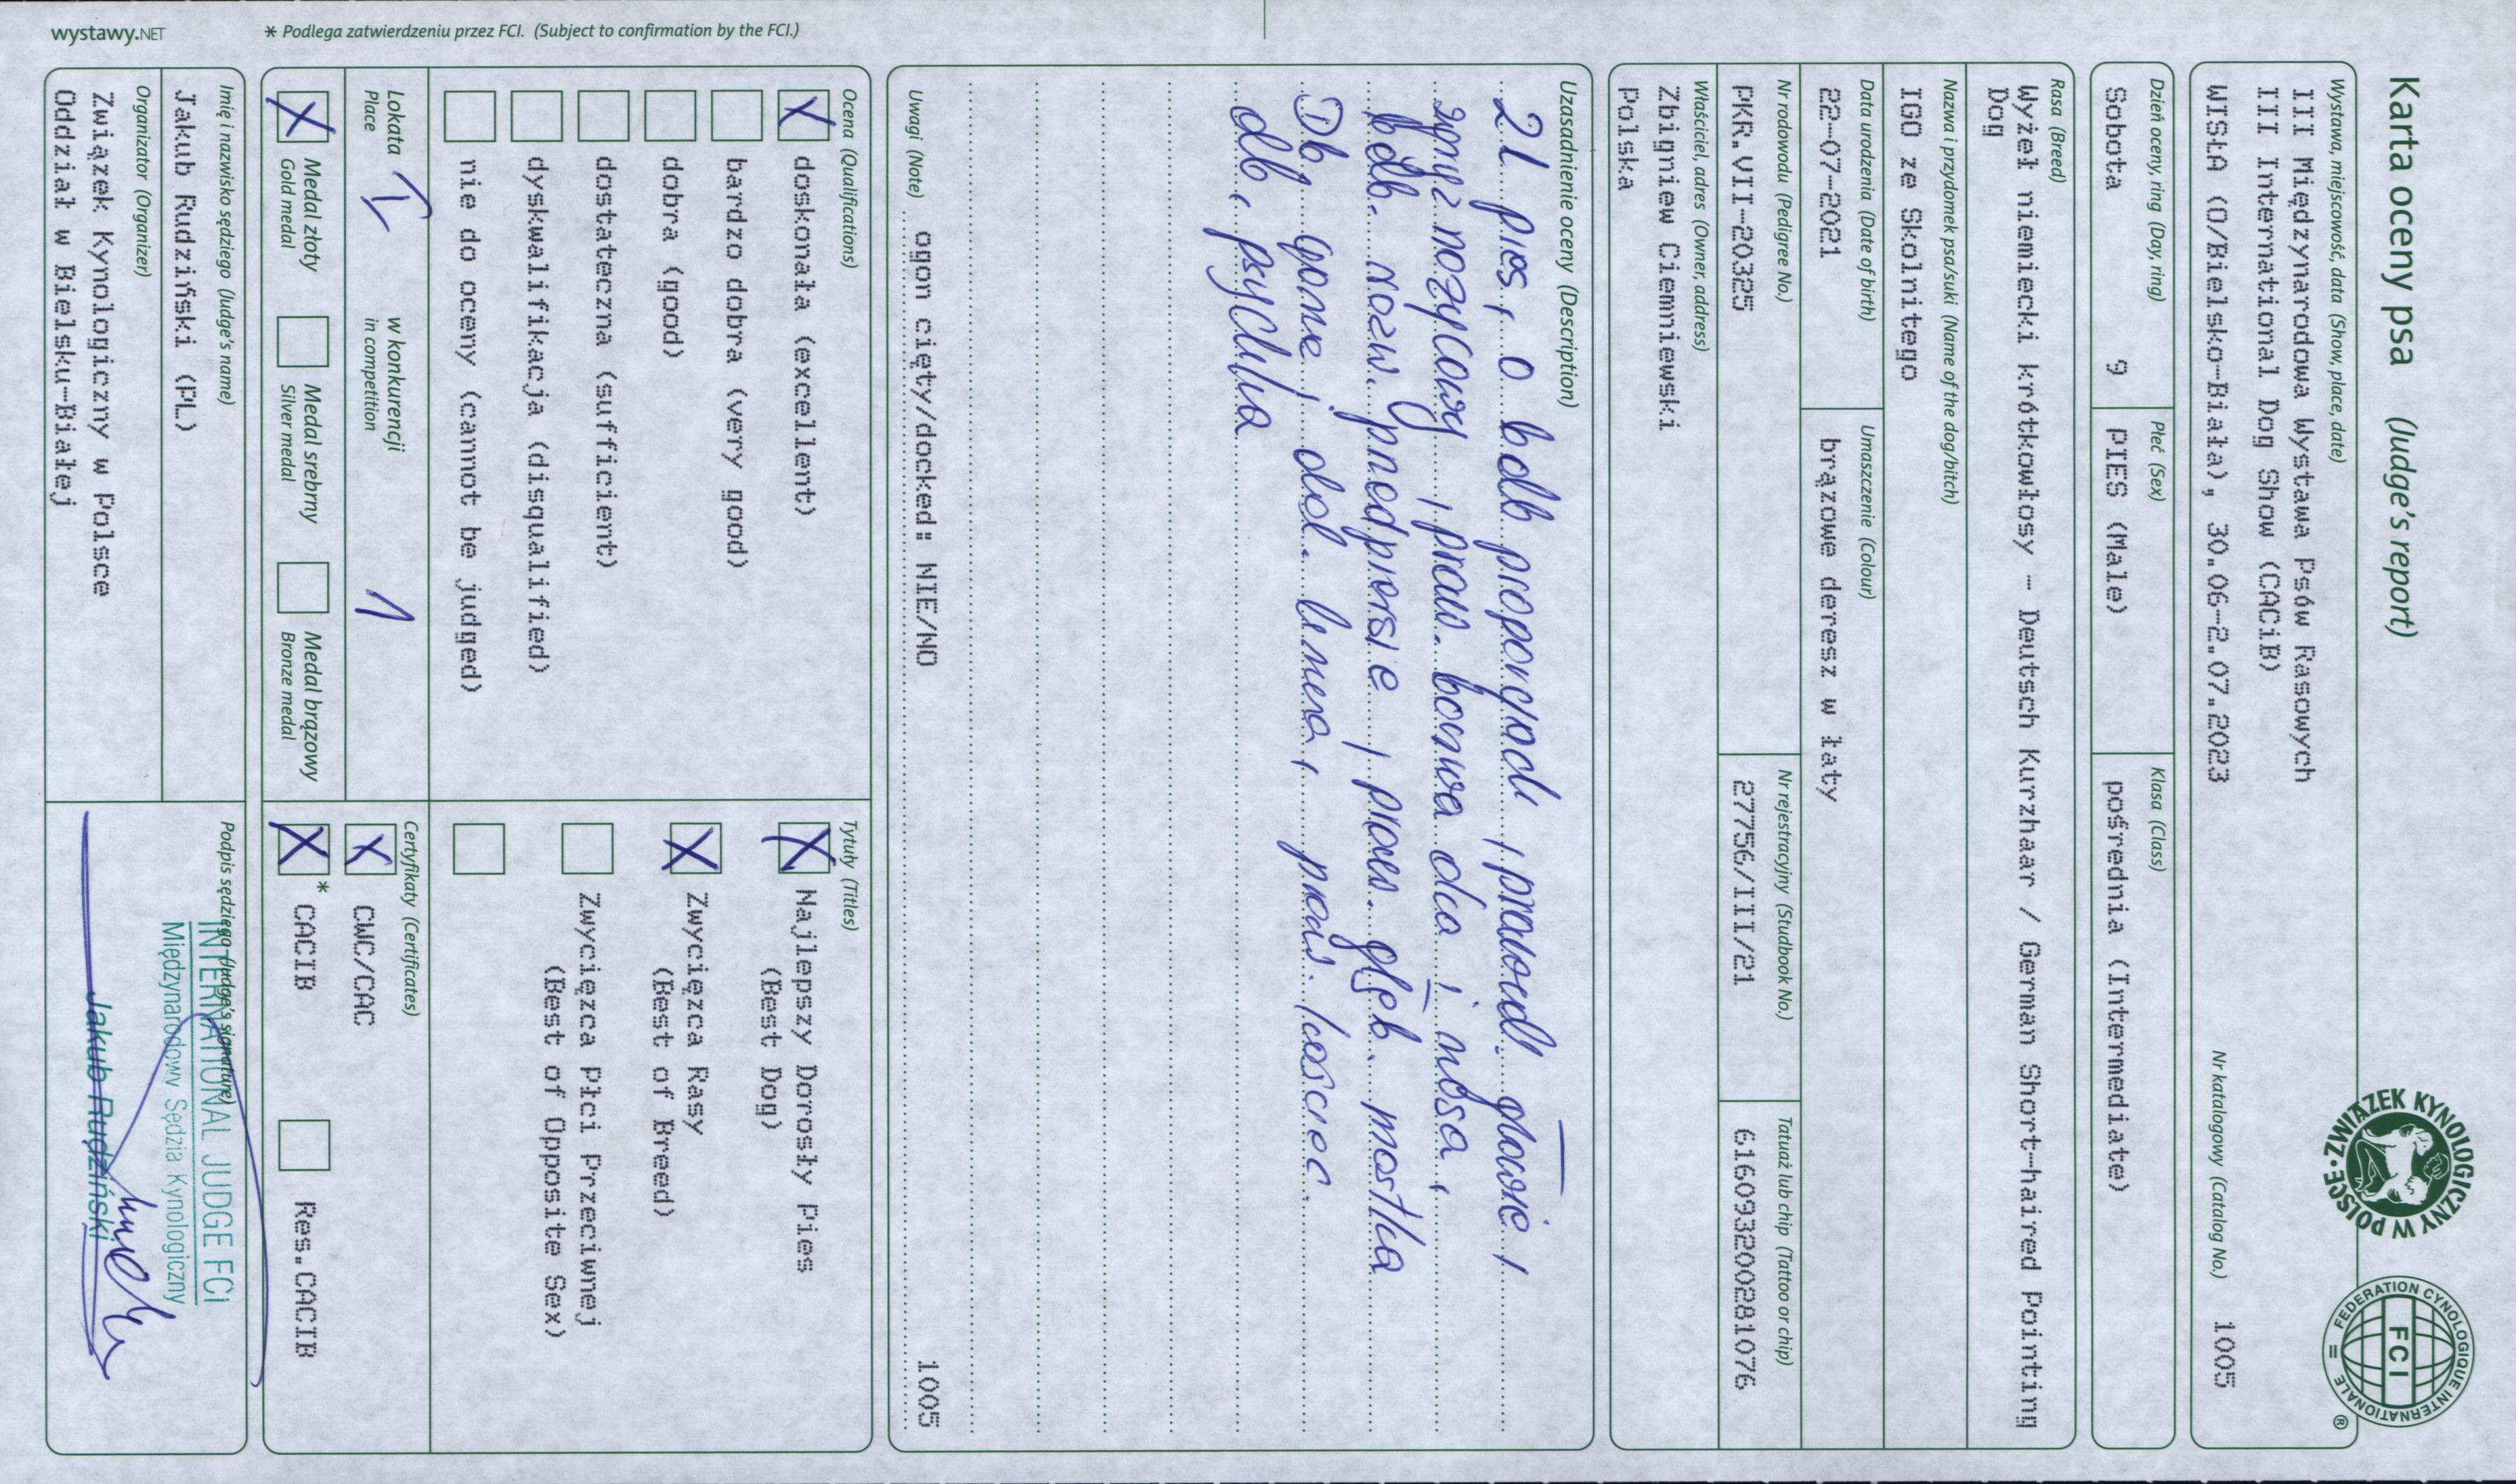 Karta oceny psa (Judge's report)
ZWIĄZEK KYNOLOGICZNY W POLSCE
FEDERATION CYNOLOGIQUE INTERNATIONALE
FCI
®
Wystawa, miejscowość, data (Show, place, date)
III Międzynarodowa Wystawa Psów Rasowych
III International Dog Show (CACiB)
WISŁA (O/Bielsko-Biała), 30.06-2.07.2023
Nr katalogowy (Catalog No.) 1005
Dzień oceny, ring (Day, ring)
Sobota 9
Płeć (Sex)
PIES (Male)
Klasa (Class)
pośrednia (Intermediate)
Rasa (Breed)
Wyżeł niemiecki krótkowłosy - Deutsch Kurzhaar / German Short-haired Pointing
Dog
Nazwa i przydomek psa/suki (Name of the dog/bitch)
IGO ze Skolnitego
Data urodzenia (Date of birth)
22-07-2021
Umaszczenie (Colour)
brązowe deresz w łaty
Nr rodowodu (Pedigree No.)
PKR.VII-20325
Nr rejestracyjny (Studbook No.)
27756/III/21
Tatuaż lub chip (Tattoo or chip)
616093200281076
Właściciel, adres (Owner, address)
Zbigniew Ciemniewski
Polska
Uzasadnienie oceny (Description)
2l pies, o bdb proporcjach, prawidł. głowie,
zgryz nożycowy, praw. barwa oka i nosa,
bdb. rozw. przedpiersie, praw. głęb. mostka
Db górne i dol. linia, praw.
db, psychika
Uwagi (Note) ogon cięty/docked: NIE/NO 1005
Ocena (Qualifications)
X doskonała (excellent)
bardzo dobra (very good)
dobra (good)
dostateczna (sufficient)
dyskwalifikacja (disqualified)
nie do oceny (cannot be judged)
Tytuły (Titles)
X Najlepszy Dorosły Pies
(Best Dog)
X Zwycięzca Rasy
(Best of Breed)
Zwycięzca Płci Przeciwnej
(Best of Opposite Sex)
Lokata
Place
I
w konkurencji
in competition
1
X Medal złoty
Gold medal
Medal srebrny
Silver medal
Medal brązowy
Bronze medal
Certyfikaty (Certificates)
X CWC/CAC
X * CACIB
Res.CACIB
Imię i nazwisko sędziego (Judge's name)
Jakub Rudziński (PL)
Organizator (Organizer)
Związek Kynologiczny w Polsce
Oddział w Bielsku-Białej
Podpis sędziego (Judge's signature)
INTERNATIONAL JUDGE FCI
Międzynarodowy Sędzia Kynologiczny
Jakub Rudziński
wystawy.NET
* Podlega zatwierdzeniu przez FCI. (Subject to confirmation by the FCI.)